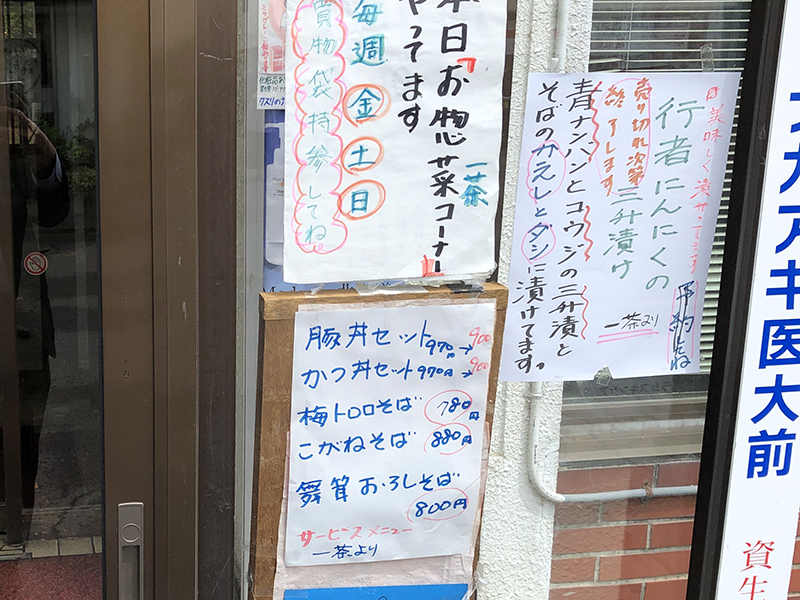 本日「お惣菜コーナー」
一茶
やってます
毎週
金
土
日
買物袋持参してね
豚丼セット970円→900
かつ丼セット970円→900
梅トロロそば 780円
こがねそば 880円
舞茸おろしそば
800円
サービスメニュー
一茶より
行者にんにくの
三升漬け
売り切れ次第
終了します
青ナンバンとコウジの三升漬と
そばのかえしとダシに漬けてます。
予約してね
一茶より
アキ医大前
資生